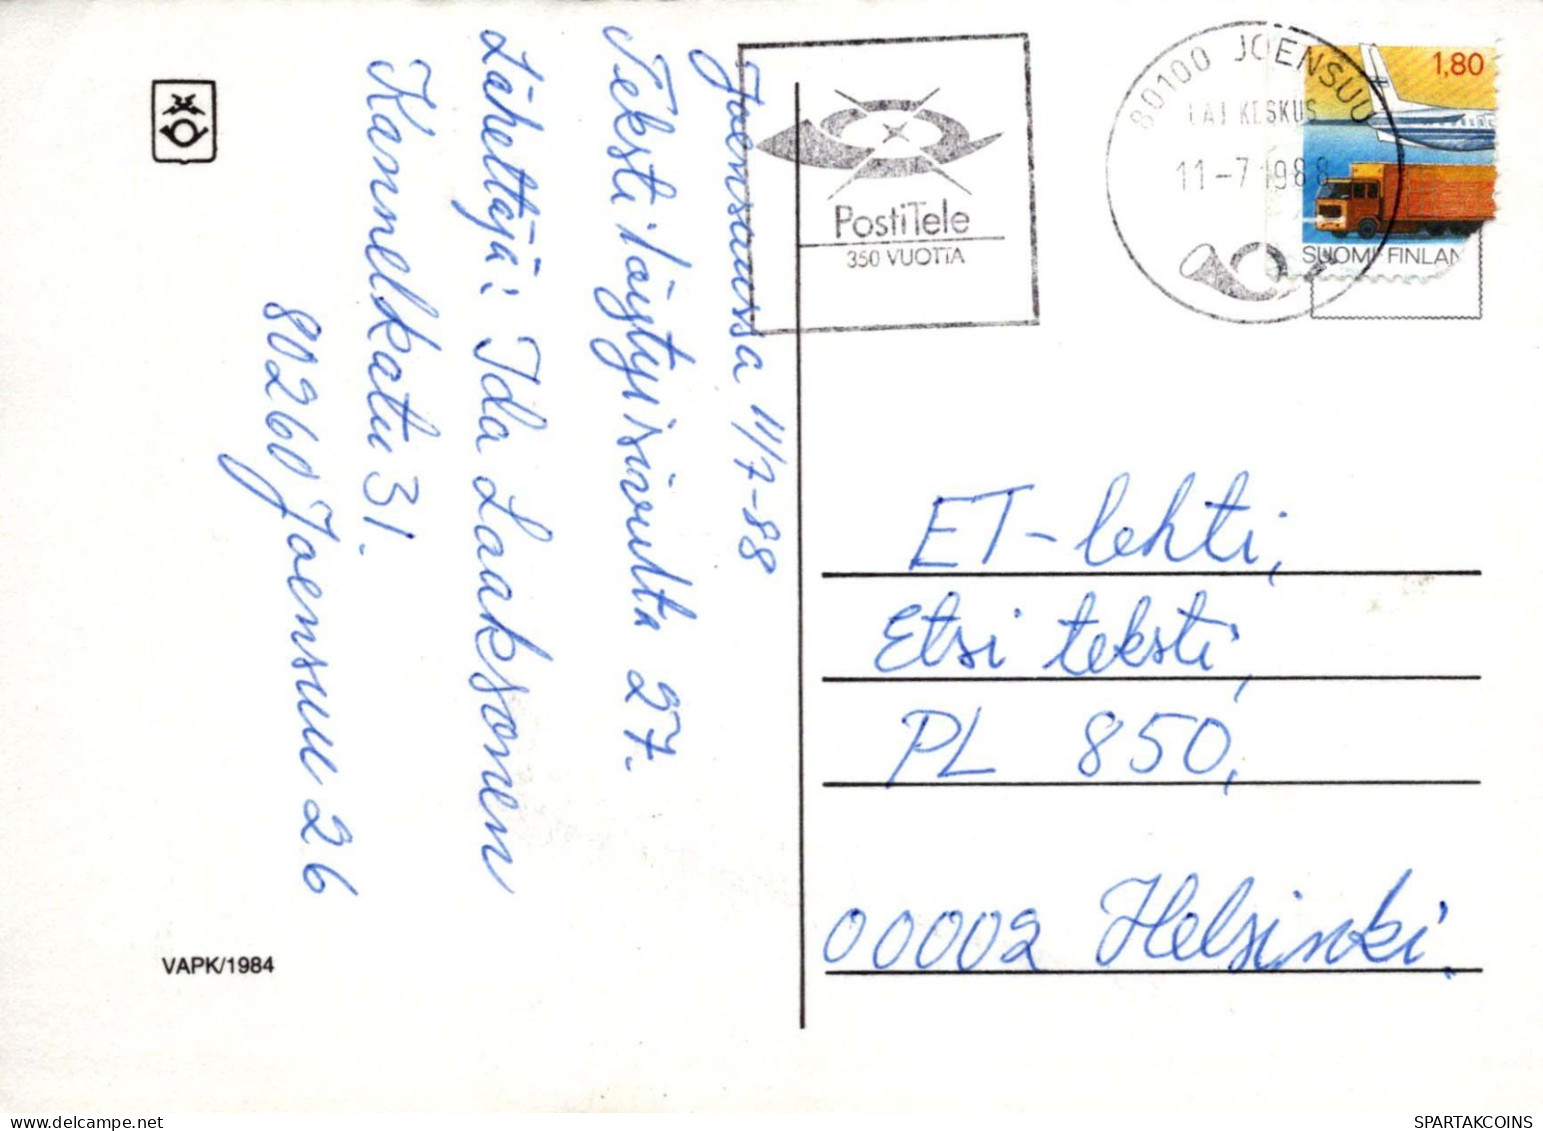 Joensuussa 11/7-88
Teksti löytyi sivulta 27.
Lähettäjä: Ida Laaksonen
Kannelkatu 31.
80260 Joensuu 26
VAPK/1984
PostiTele
350 VUOTTA
80100 JOENSUU
LAJ KESKUS
11-7 1988
1,80
SUOMI-FINLAN
ET-lehti,
Etsi teksti,
PL 850,
00002 Helsinki.
SPARTAKCOINS